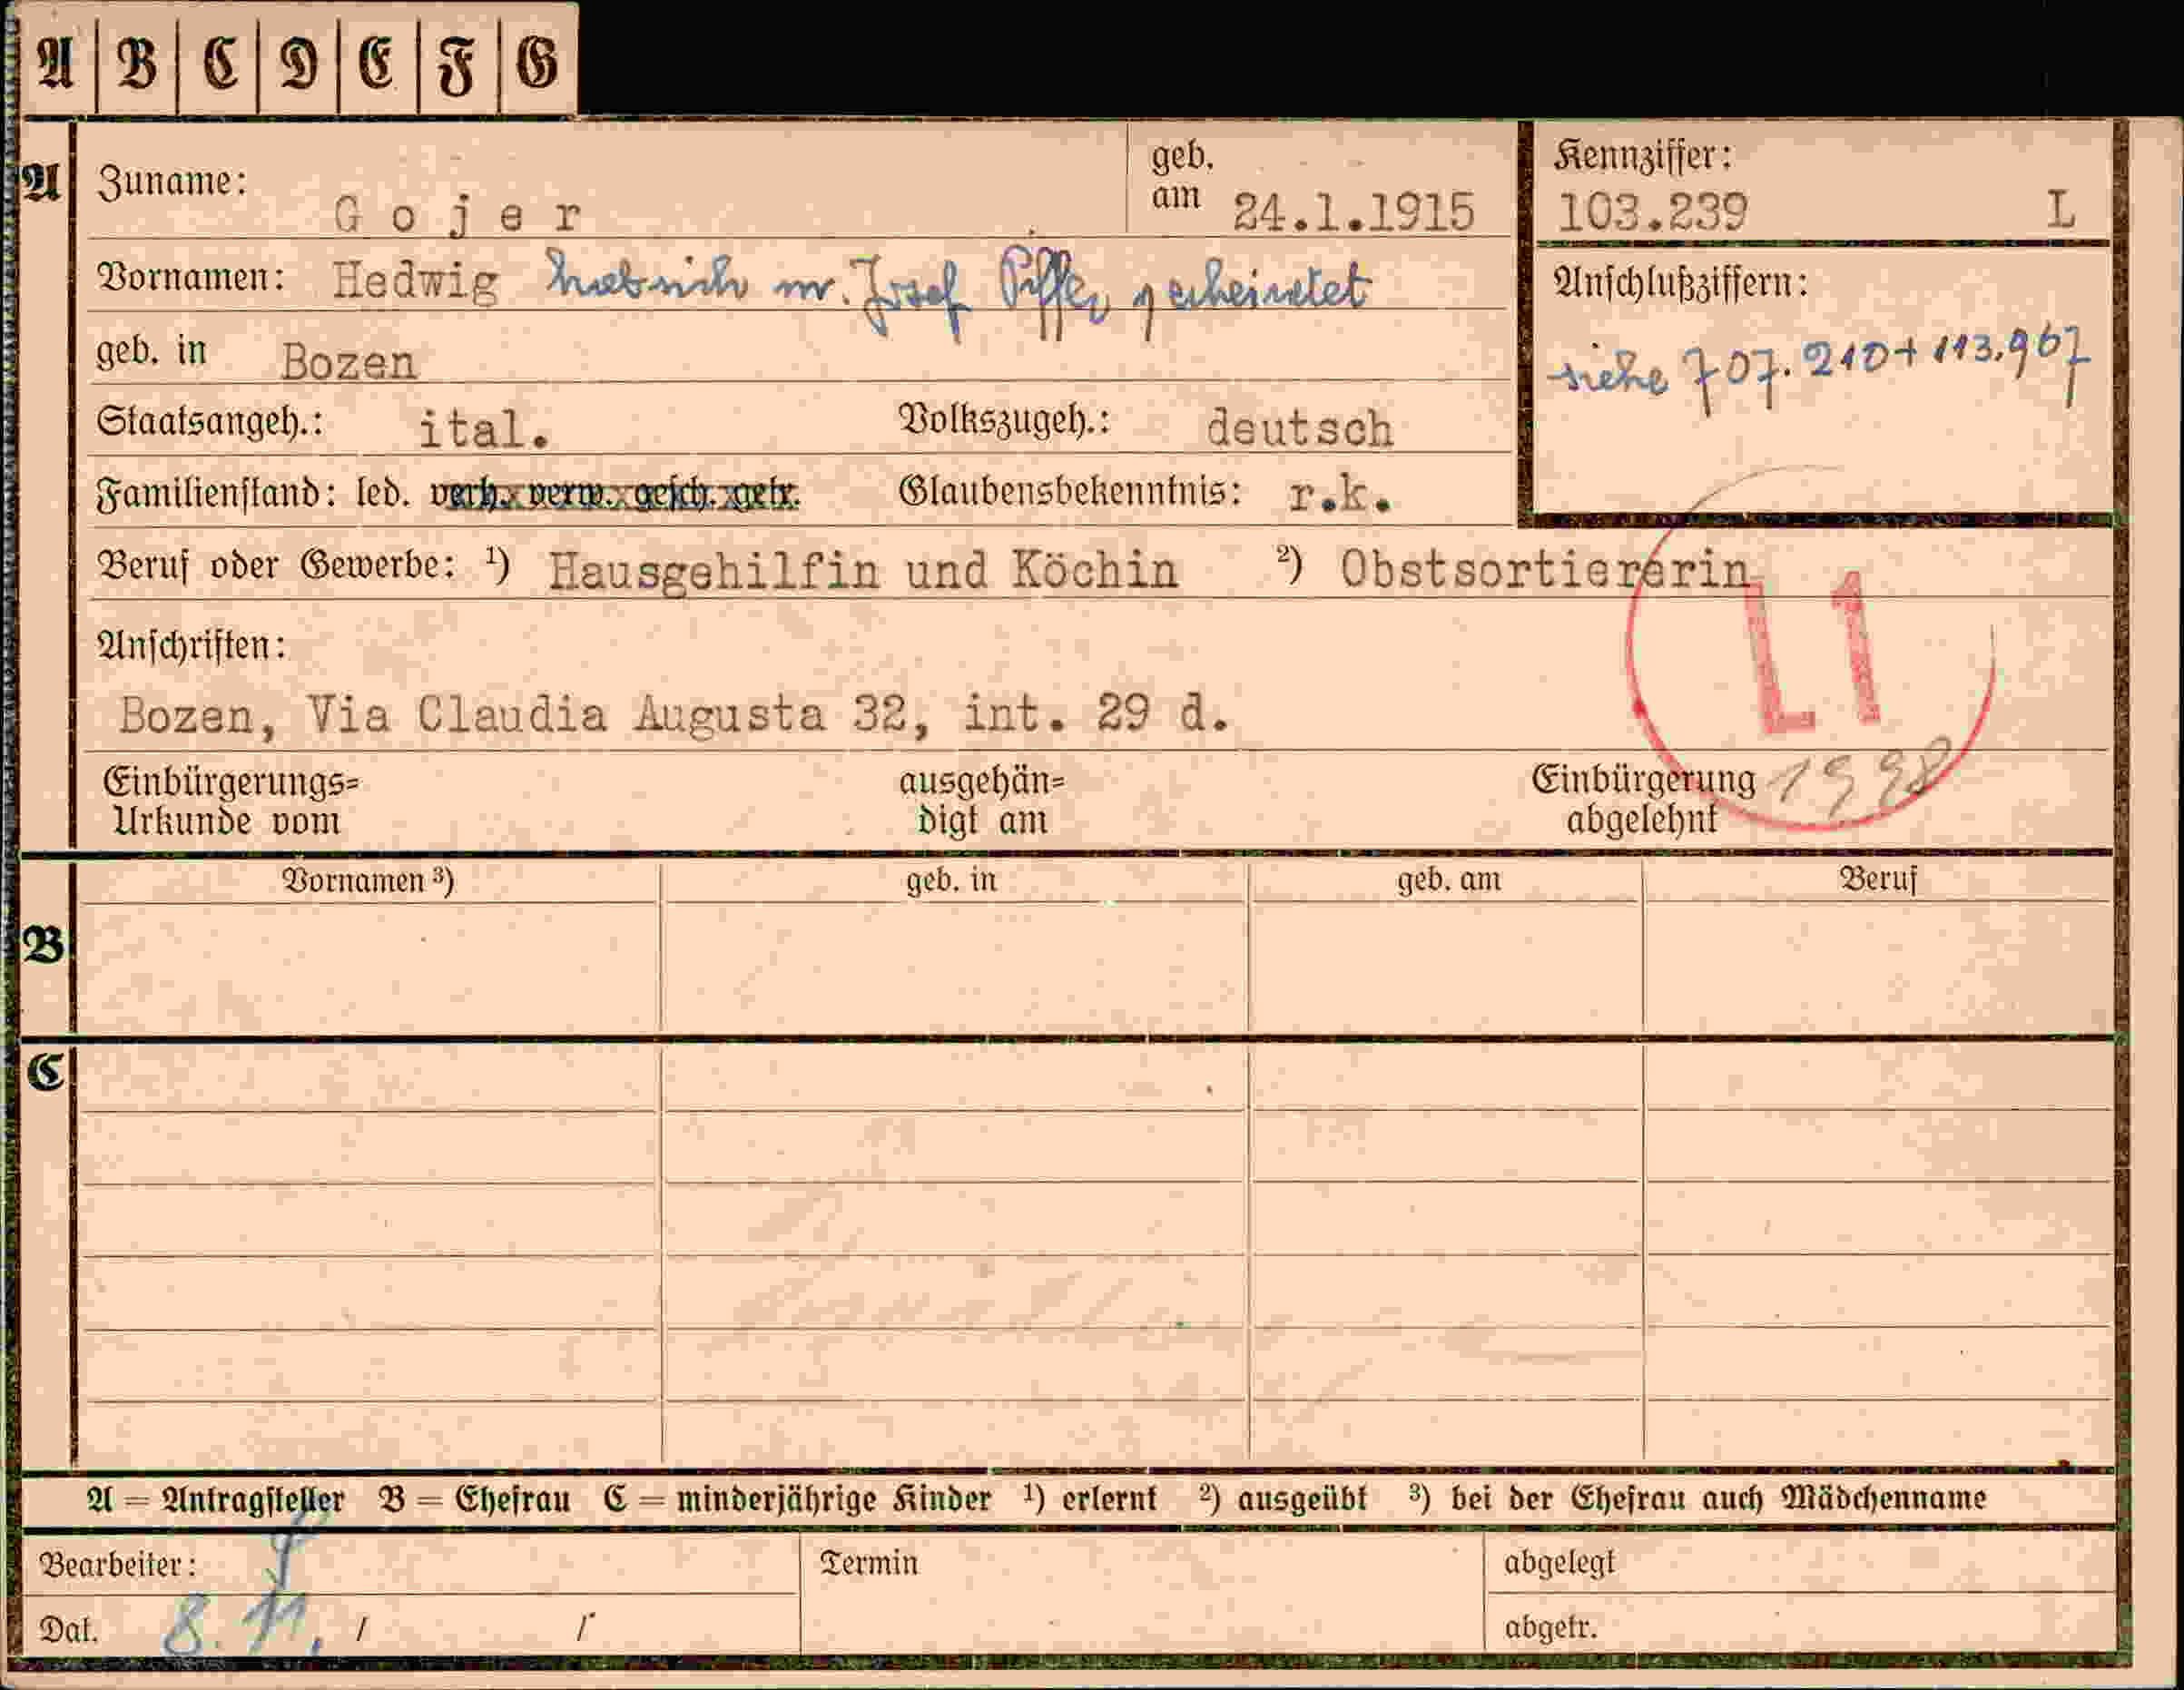 A B C D E F G
A
Zuname: Gojer
geb. am 24.1.1915
Kennziffer: 103.239 L
Vornamen: Hedwig m. Josef Piffer
Anschlußziffern: siehe 707.210 + 113.967
geb. in Bozen
Staatsangeh.: ital. Volkszugeh.: deutsch
Familienstand: led. verh. verw. gesch. getr. Glaubensbekenntnis: r.k.
Beruf oder Gewerbe: ¹) Hausgehilfin und Köchin ²) Obstsortiererin
L1
Anschriften:
Bozen, Via Claudia Augusta 32, int. 29 d.
Einbürgerungs=
Urkunde vom
ausgehän=
digt am
Einbürgerung
abgelehnt
Vornamen ³) geb. in geb. am Beruf
B
C
A = Antragsteller B = Ehefrau C = minderjährige Kinder ¹) erlernt ²) ausgeübt ³) bei der Ehefrau auch Mädchenname
Bearbeiter: Termin abgelegt
Dat. 8. 11. / / abgetr.